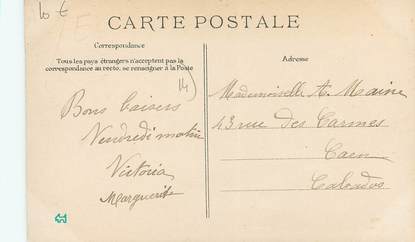 10 €
CARTE POSTALE
Correspondance
Tous les pays étrangers n'acceptent pas la
correspondance au recto, se renseigner à la Poste
Adresse
14
Bons baisers
Vendredi matin
Victoria
Marguerite
Mademoiselle A. Maine
43 rue des Carmes
Caen
Calvados